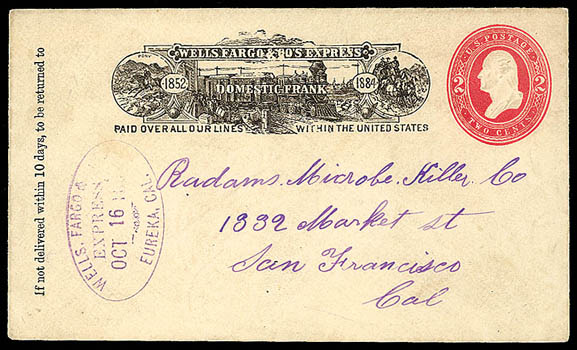 WELLS, FARGO & CO'S EXPRESS
1852 DOMESTIC FRANK 1884
PAID OVER ALL OUR LINES WITHIN THE UNITED STATES
U.S. POSTAGE
2 2
TWO CENTS
If not delivered within 10 days, to be returned to
WELLS, FARGO &
EXPRESS
OCT 16
EUREKA, CAL.
Radams. Microbe. Killer. Co
1332 Market st
San Francisco
Cal